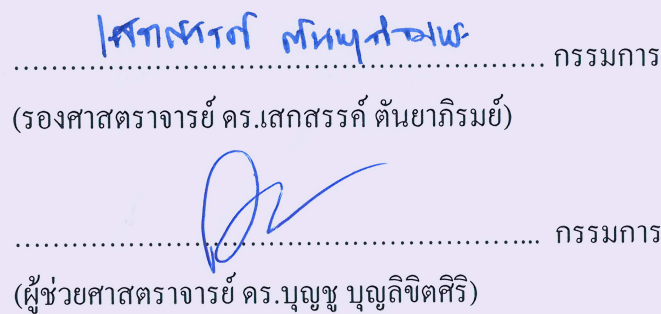 เสกสรรค์ ตันยาภิรมย์
........................................................................ กรรมการ
(รองศาสตราจารย์ ดร.เสกสรรค์ ตันยาภิรมย์)
........................................................................ กรรมการ
(ผู้ช่วยศาสตราจารย์ ดร.บุญชู บุญลิขิตศิริ)